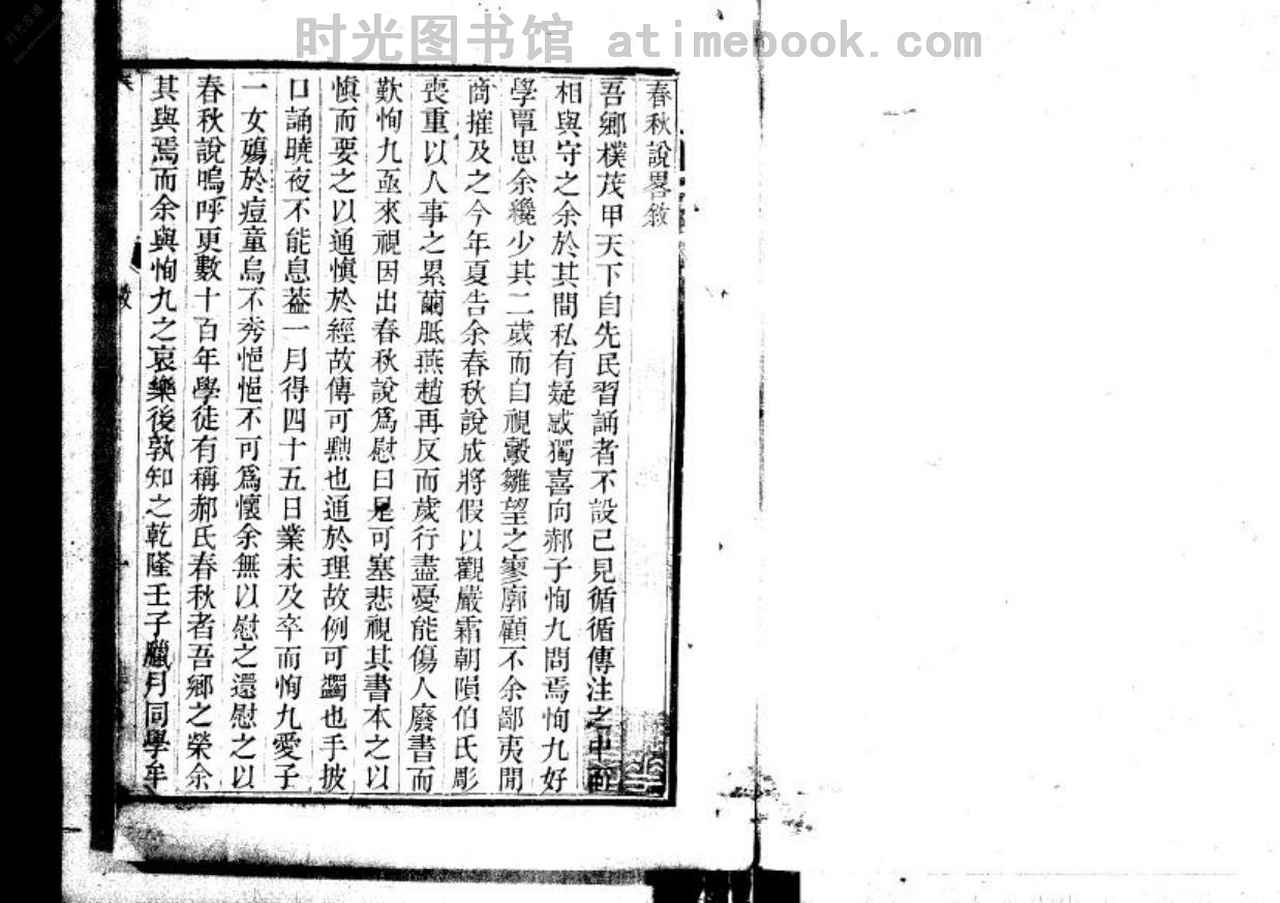 时光图书馆 atimebook.com
春秋說畧敘
吾鄉樸茂甲天下自先民習誦者不設己見循循傳注之中而
相與守之余於其間私有疑惑獨喜向郝子恂九問焉恂九好
學覃思余纔少其二歲而自視鷇雛望之寥廓顧不余鄙夷閒
商搉及之今年夏告余春秋說成將假以觀嚴霜朝隕伯氏彫
喪重以人事之累繭胝燕趙再反而歲行盡憂能傷人廢書而
歎恂九亟來視因出春秋說爲慰曰是可塞悲視其書本之以
愼而要之以通愼於經故傳可黜也通於理故例可蠲也手披
口誦曉夜不能息葢一月得四十五日業未及卒而恂九愛子
一女殤於痘童烏不秀悒悒不可爲懷余無以慰之還慰之以
春秋說嗚呼更數十百年學徒有稱郝氏春秋者吾鄉之榮余
其與焉而余與恂九之哀樂後孰知之乾隆壬子臘月同學牟
敘